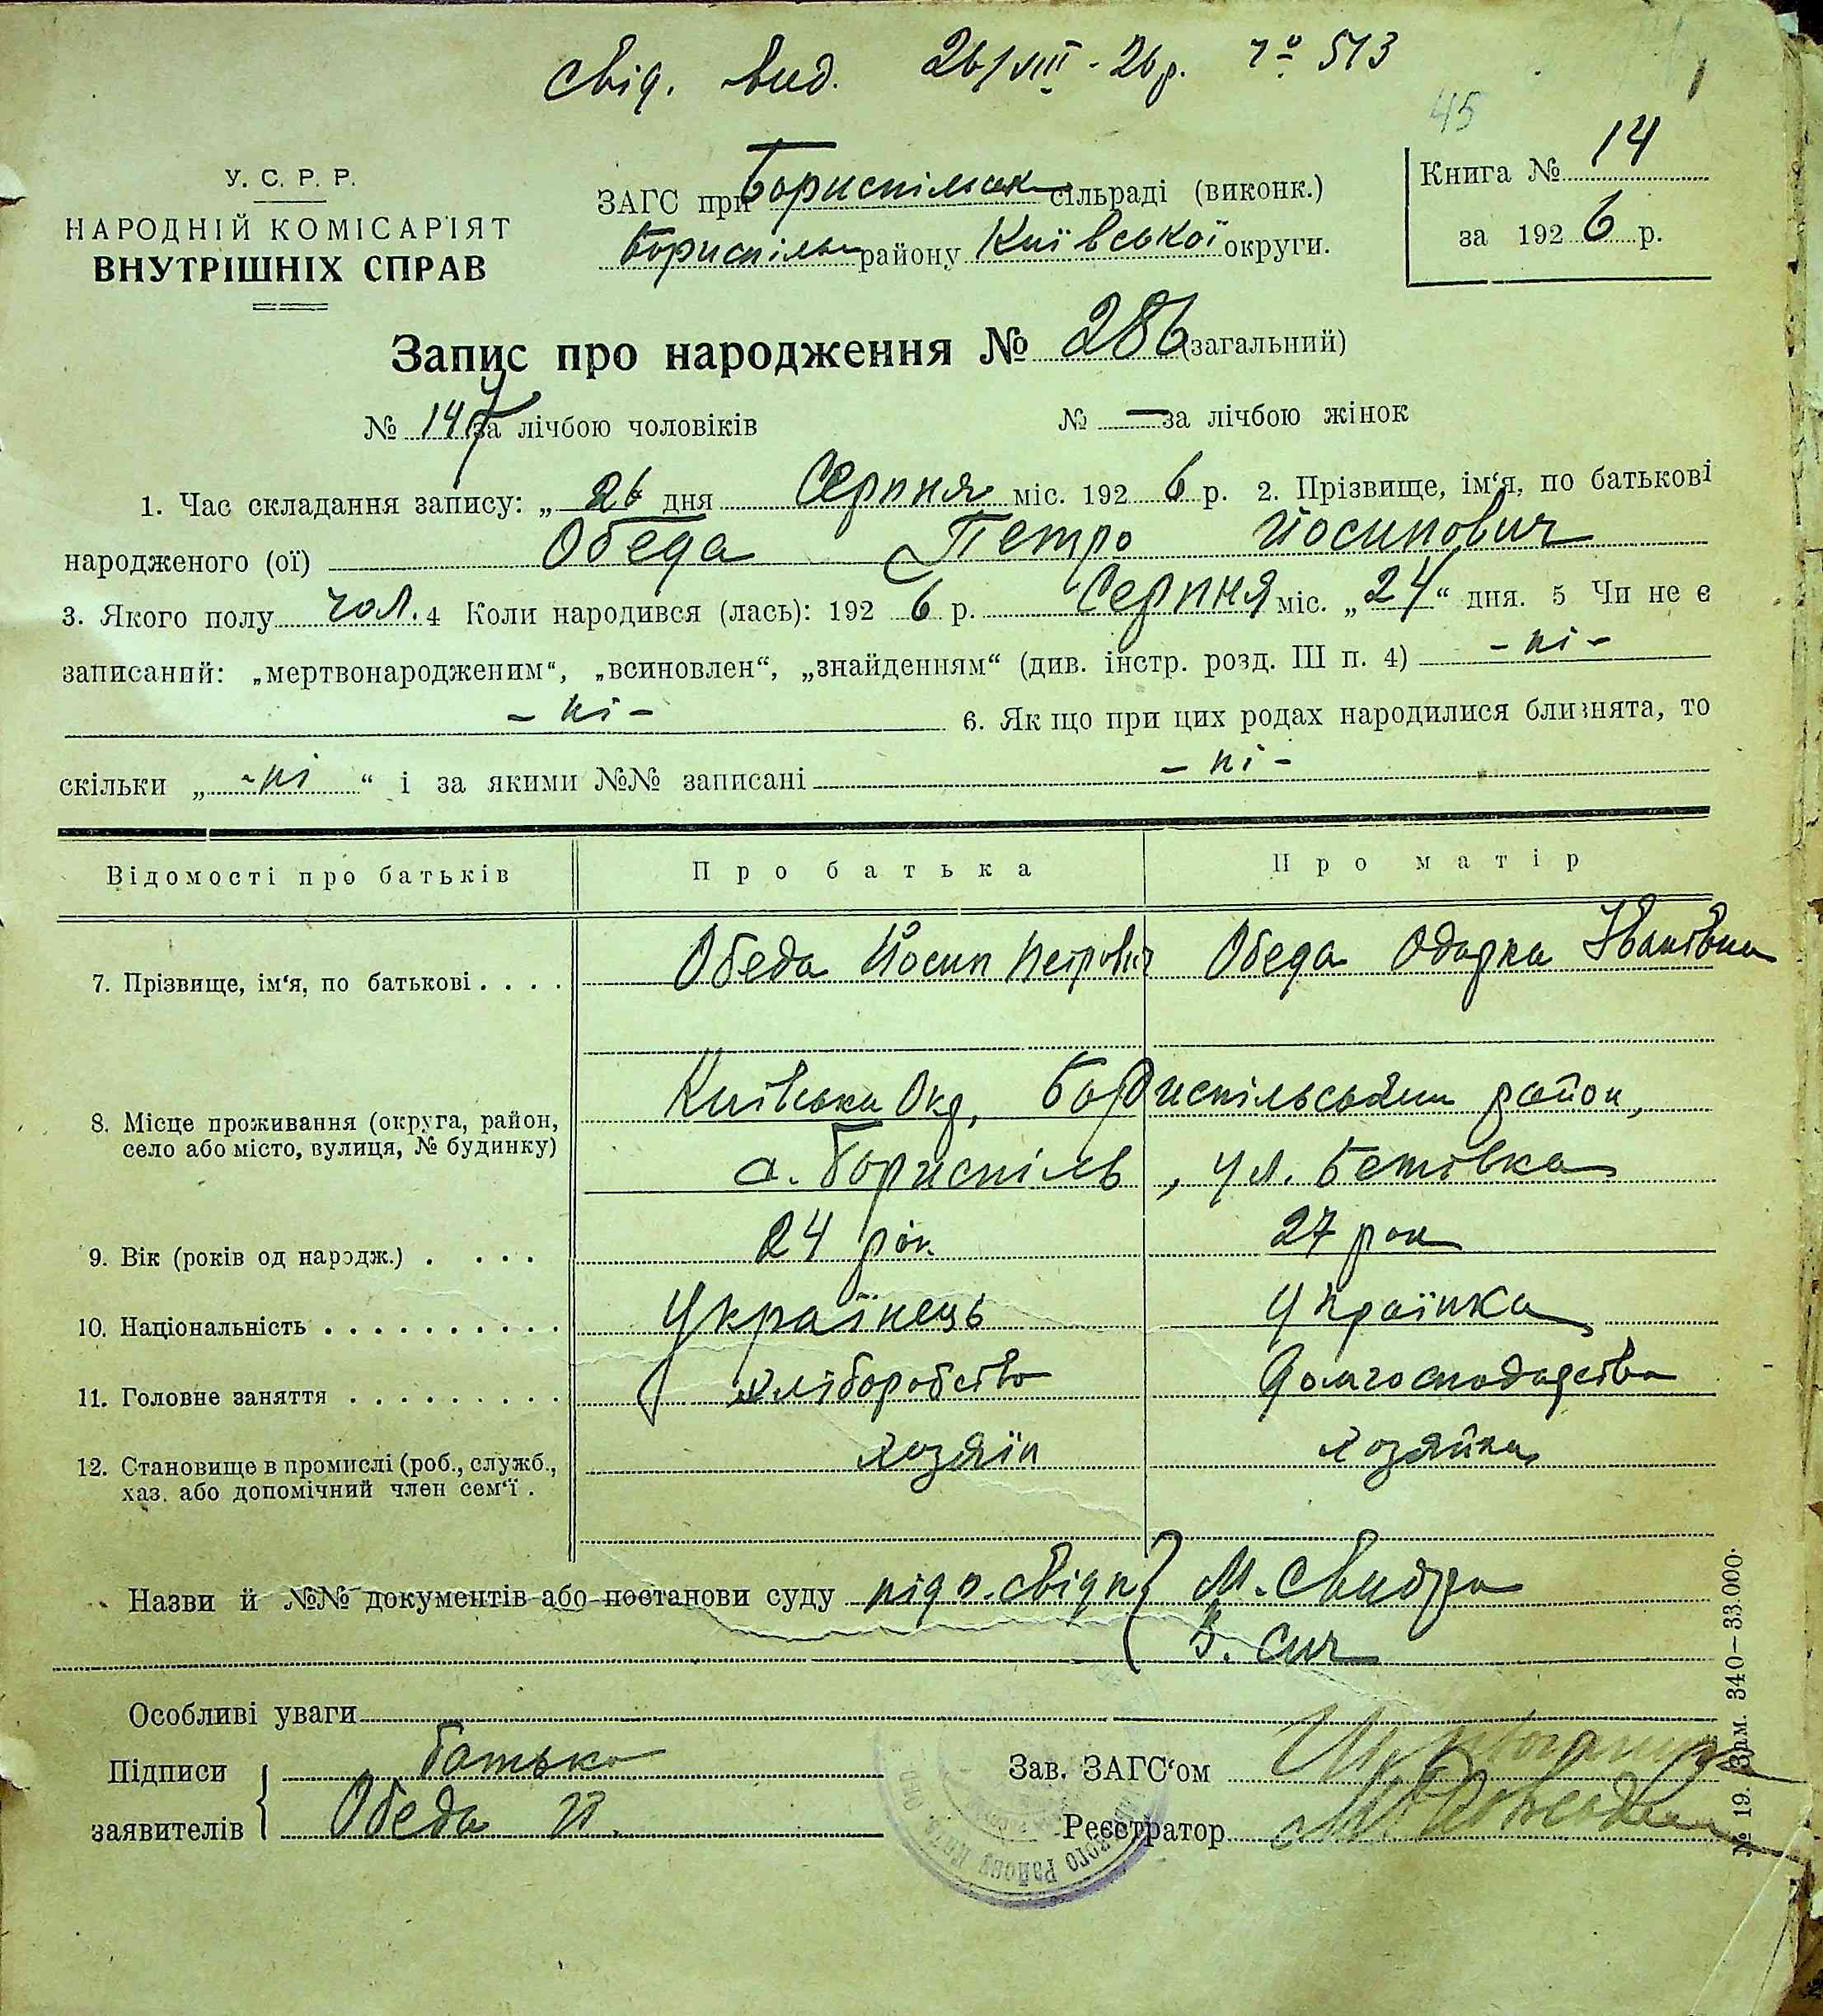 свід. вид. 26/VIII - 26 р. № 513
45
У. С. Р. Р.
НАРОДНІЙ КОМІСАРІЯТ
ВНУТРІШНІХ СПРАВ
ЗАГС при Бориспільськ сільраді (виконк.)
Бориспільськ району Київської округи.
Книга № 14
за 1926 р.
Запис про народження № 286 (загальний)
№ 147 за лічбою чоловіків № — за лічбою жінок
1. Час складання запису: „ 26 дня Серпня міс. 1926 р. 2. Прізвище, ім‘я, по батькові
народженого (ої) Обеда Петро Йосипович
3. Якого полу чол. 4 Коли народився (лась): 1926 р. Серпня міс. „24“ дня. 5 Чи не є
записаний: „мертвонародженим“, „всиновлен“, „знайденням“ (див. інстр. розд. III п. 4) - ні -
- ні - 6. Якщо при цих родах народилися близнята, то
скільки „ - ні “ і за якими №№ записані - ні -
Відомості про батьків Про батька Про матір
7. Прізвище, ім‘я, по батькові . . . . Обеда Йосип Петрович Обеда Одарка Іванівна
8. Місце проживання (округа, район, Київська Окр, Бориспільський район,
село або місто, вулиця, № будинку) с. Бориспіль, ул. Бетівка
9. Вік (років од народж.) . . . . 24 рок 27 рок
10. Національність . . . . . . . . . . Українець Українка
11. Головне заняття . . . . . . . . . Хліборобство Домгосподарство
12. Становище в промислі (роб., служб., хозяїн хозяйка
хаз. або допомічний член сем‘ї .
Назви й №№ документів або постанови суду підп. свідк М. Свидра
В. Сич
Особливі уваги
Підписи батько Зав. ЗАГС‘ом
заявителів Обеда Й. Реєстратор
№ 19. Зам. 340—33.000.